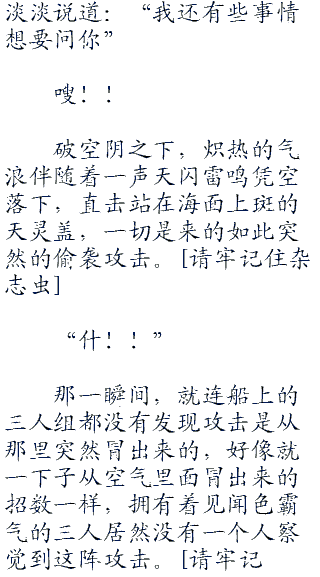 淡淡说道：“我还有些事情
想要问你”
嗖！！
破空阴之下，炽热的气
浪伴随着一声天闪雷鸣凭空
落下，直击站在海面上斑的
天灵盖，一切是来的如此突
然的偷袭攻击。[请牢记住杂
志虫]
“什！！”
那一瞬间，就连船上的
三人组都没有发现攻击是从
那里突然冒出来的，好像就
一下子从空气里面冒出来的
招数一样，拥有着见闻色霸
气的三人居然没有一个人察
觉到这阵攻击。[请牢记